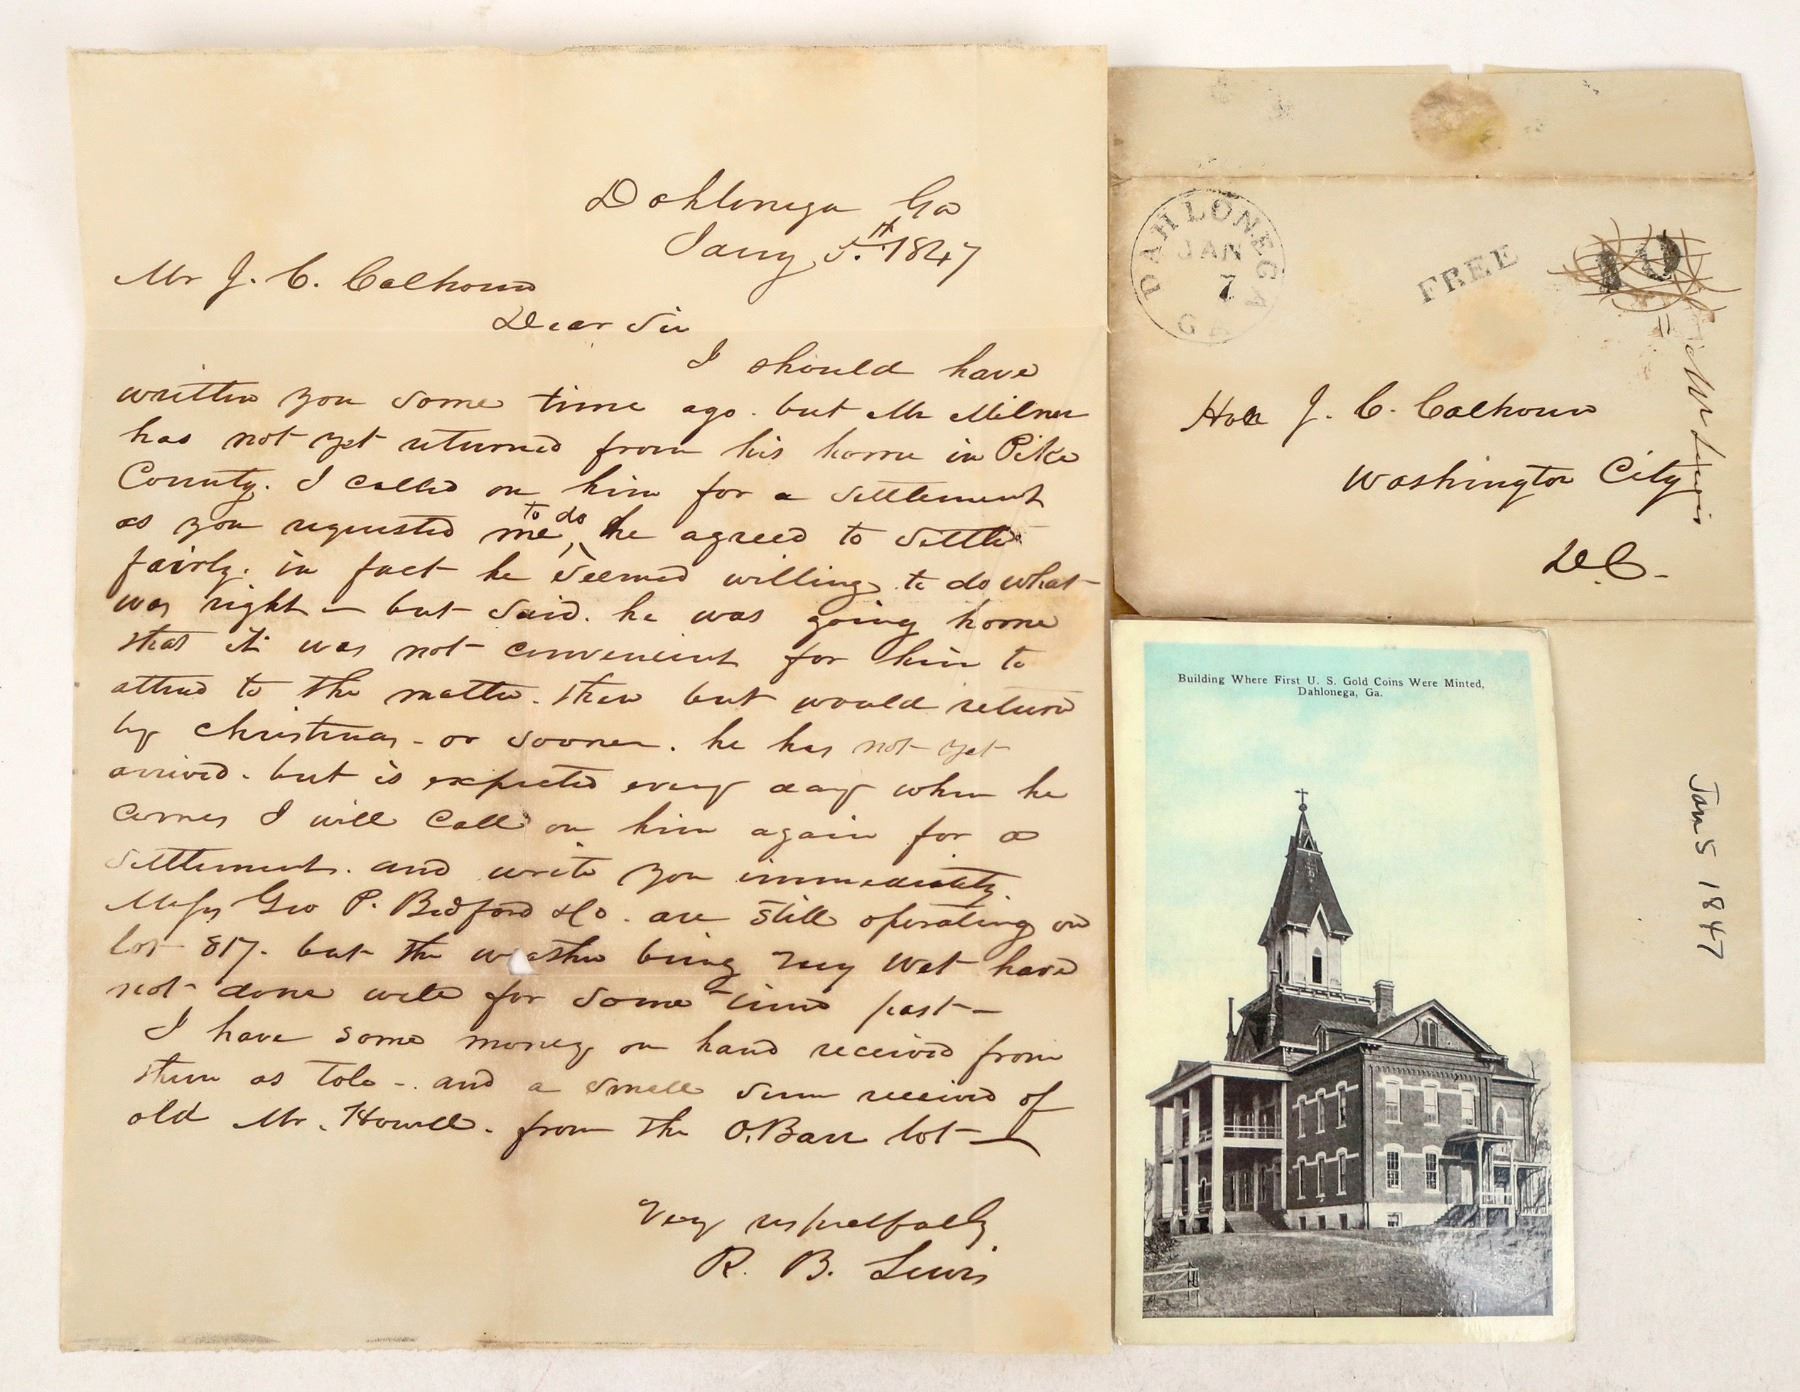 Dahlonega Ga
Jany 5.th 1847
Mr J. C. Calhoun
Dear Sir
I should have
written you some time ago. but Mr Milner
has not yet returned from his home in Pike
County. I called on him for a settlement
as you requested me to do, he agreed to settle
fairly. in fact he seemed willing to do what
was right – but said. he was going home
that it was not convenient for him to
attend to the matter. then but would return
by Christmas – or sooner. he has not yet
arrived. but is expected every day when he
comes I will call on him again for a
settlement. and write you immediately.
Messrs Geo P. Bedford & Co. are still operating on
lot 817. but the weather being very wet have
not done well for some time past –
I have some money on hand received from
them as Tole –. and a small sum received of
old Mr. Howell. from the O.Barr lot –
Very respectfully
R. B. Lewis
DAHLONEGA
JAN
7
GA
FREE
10
Hon J. C. Calhoun
Washington City
D.C.
Mr Lewis
Jan 5 1847
Building Where First U. S. Gold Coins Were Minted,
Dahlonega, Ga.